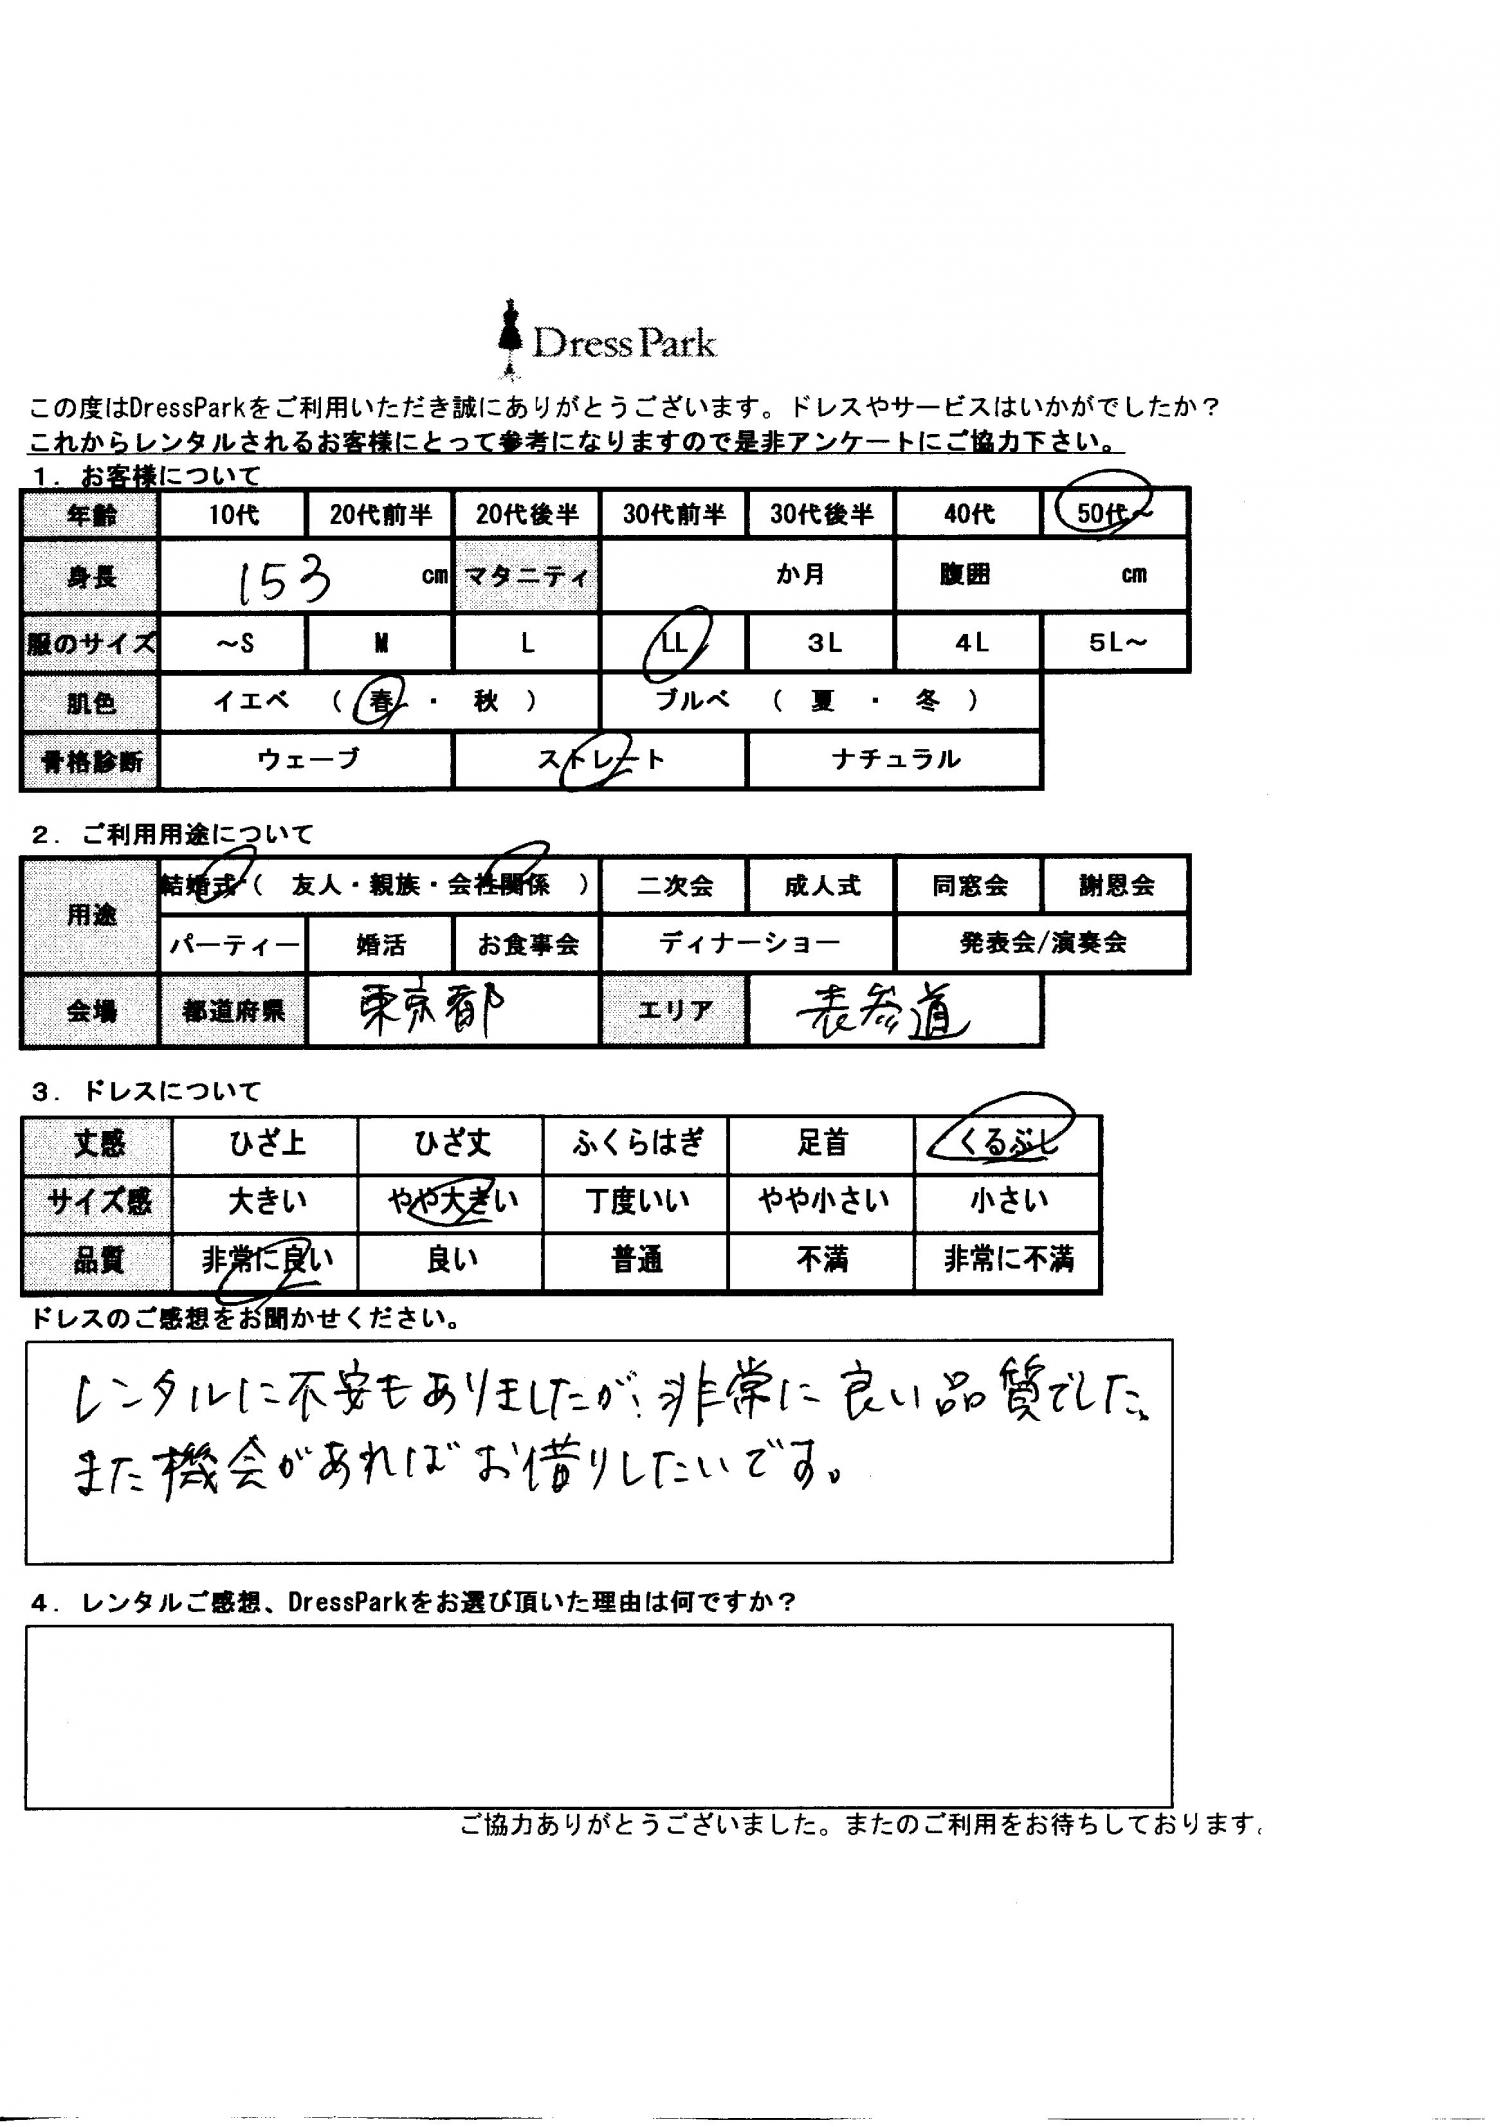 DressPark
この度はDressParkをご利用いただき誠にありがとうございます。ドレスやサービスはいかがでしたか？
これからレンタルされるお客様にとって参考になりますので是非アンケートにご協力下さい。
１．お客様について
年齢 10代 20代前半 20代後半 30代前半 30代後半 40代 50代～
身長 153 cm マタニティ か月 腹囲 cm
服のサイズ ～S M L LL 3L 4L 5L～
肌色 イエベ （ 春 ・ 秋 ） ブルベ （ 夏 ・ 冬 ）
骨格診断 ウェーブ ストレート ナチュラル
２．ご利用用途について
用途 結婚式（ 友人・親族・会社関係 ） 二次会 成人式 同窓会 謝恩会
パーティー 婚活 お食事会 ディナーショー 発表会/演奏会
会場 都道府県 東京都 エリア 表参道
３．ドレスについて
丈感 ひざ上 ひざ丈 ふくらはぎ 足首 くるぶし
サイズ感 大きい やや大きい 丁度いい やや小さい 小さい
品質 非常に良い 良い 普通 不満 非常に不満
ドレスのご感想をお聞かせください。
レンタルに不安もありましたが、非常に良い品質でした。
また機会があればお借りしたいです。
４．レンタルご感想、DressParkをお選び頂いた理由は何ですか？
ご協力ありがとうございました。またのご利用をお待ちしております。